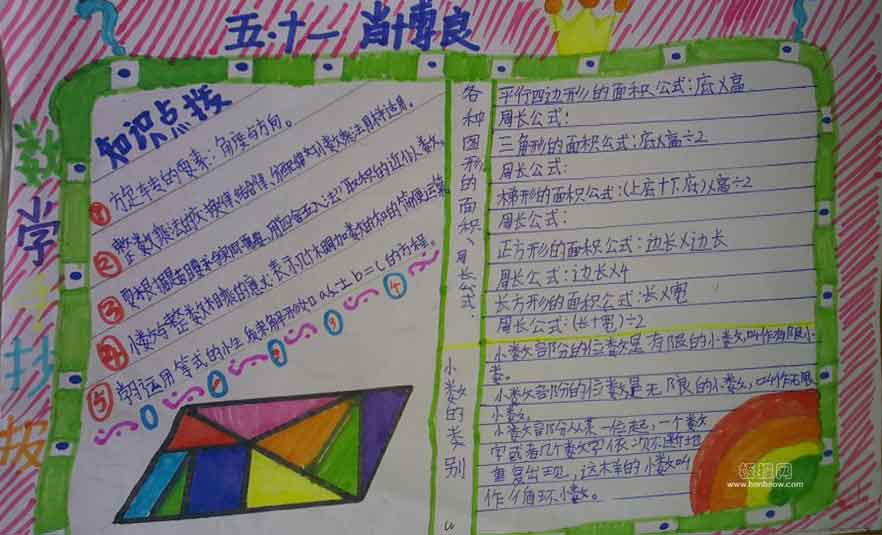 五.十一 当博良
数学手抄报
知识点拨
① 方定车专的要素：角度与方向。
② 整数乘法的交换律、结合律、分配律对小数乘法同样适用。
③ 要根据实际需要，用“四舍五入法”取积的近似数。
④ 小数与整数相乘的意义：表示几个相同加数的和的简便运算。
⑤ 学习运用等式的性质来解形如 a±b=c的方程。
各种图形的面积、周长公式：
平行四边形的面积公式：底×高
周长公式：
三角形的面积公式：底×高÷2
周长公式：
梯形的面积公式：(上底+下底)×高÷2
周长公式：
正方形的面积公式：边长×边长
周长公式：边长×4
长方形的面积公式：长×宽
周长公式：(长+宽)÷2
小数的类别
小数部分的位数是有限的小数，叫作有限小
数。
小数部分的位数是无限的小数，叫作无限
小数。
小数部分从某一位起，一个数
字或者几个数字依次不断地
重复出现，这样的小数叫
作循环小数。
www.banbaow.com